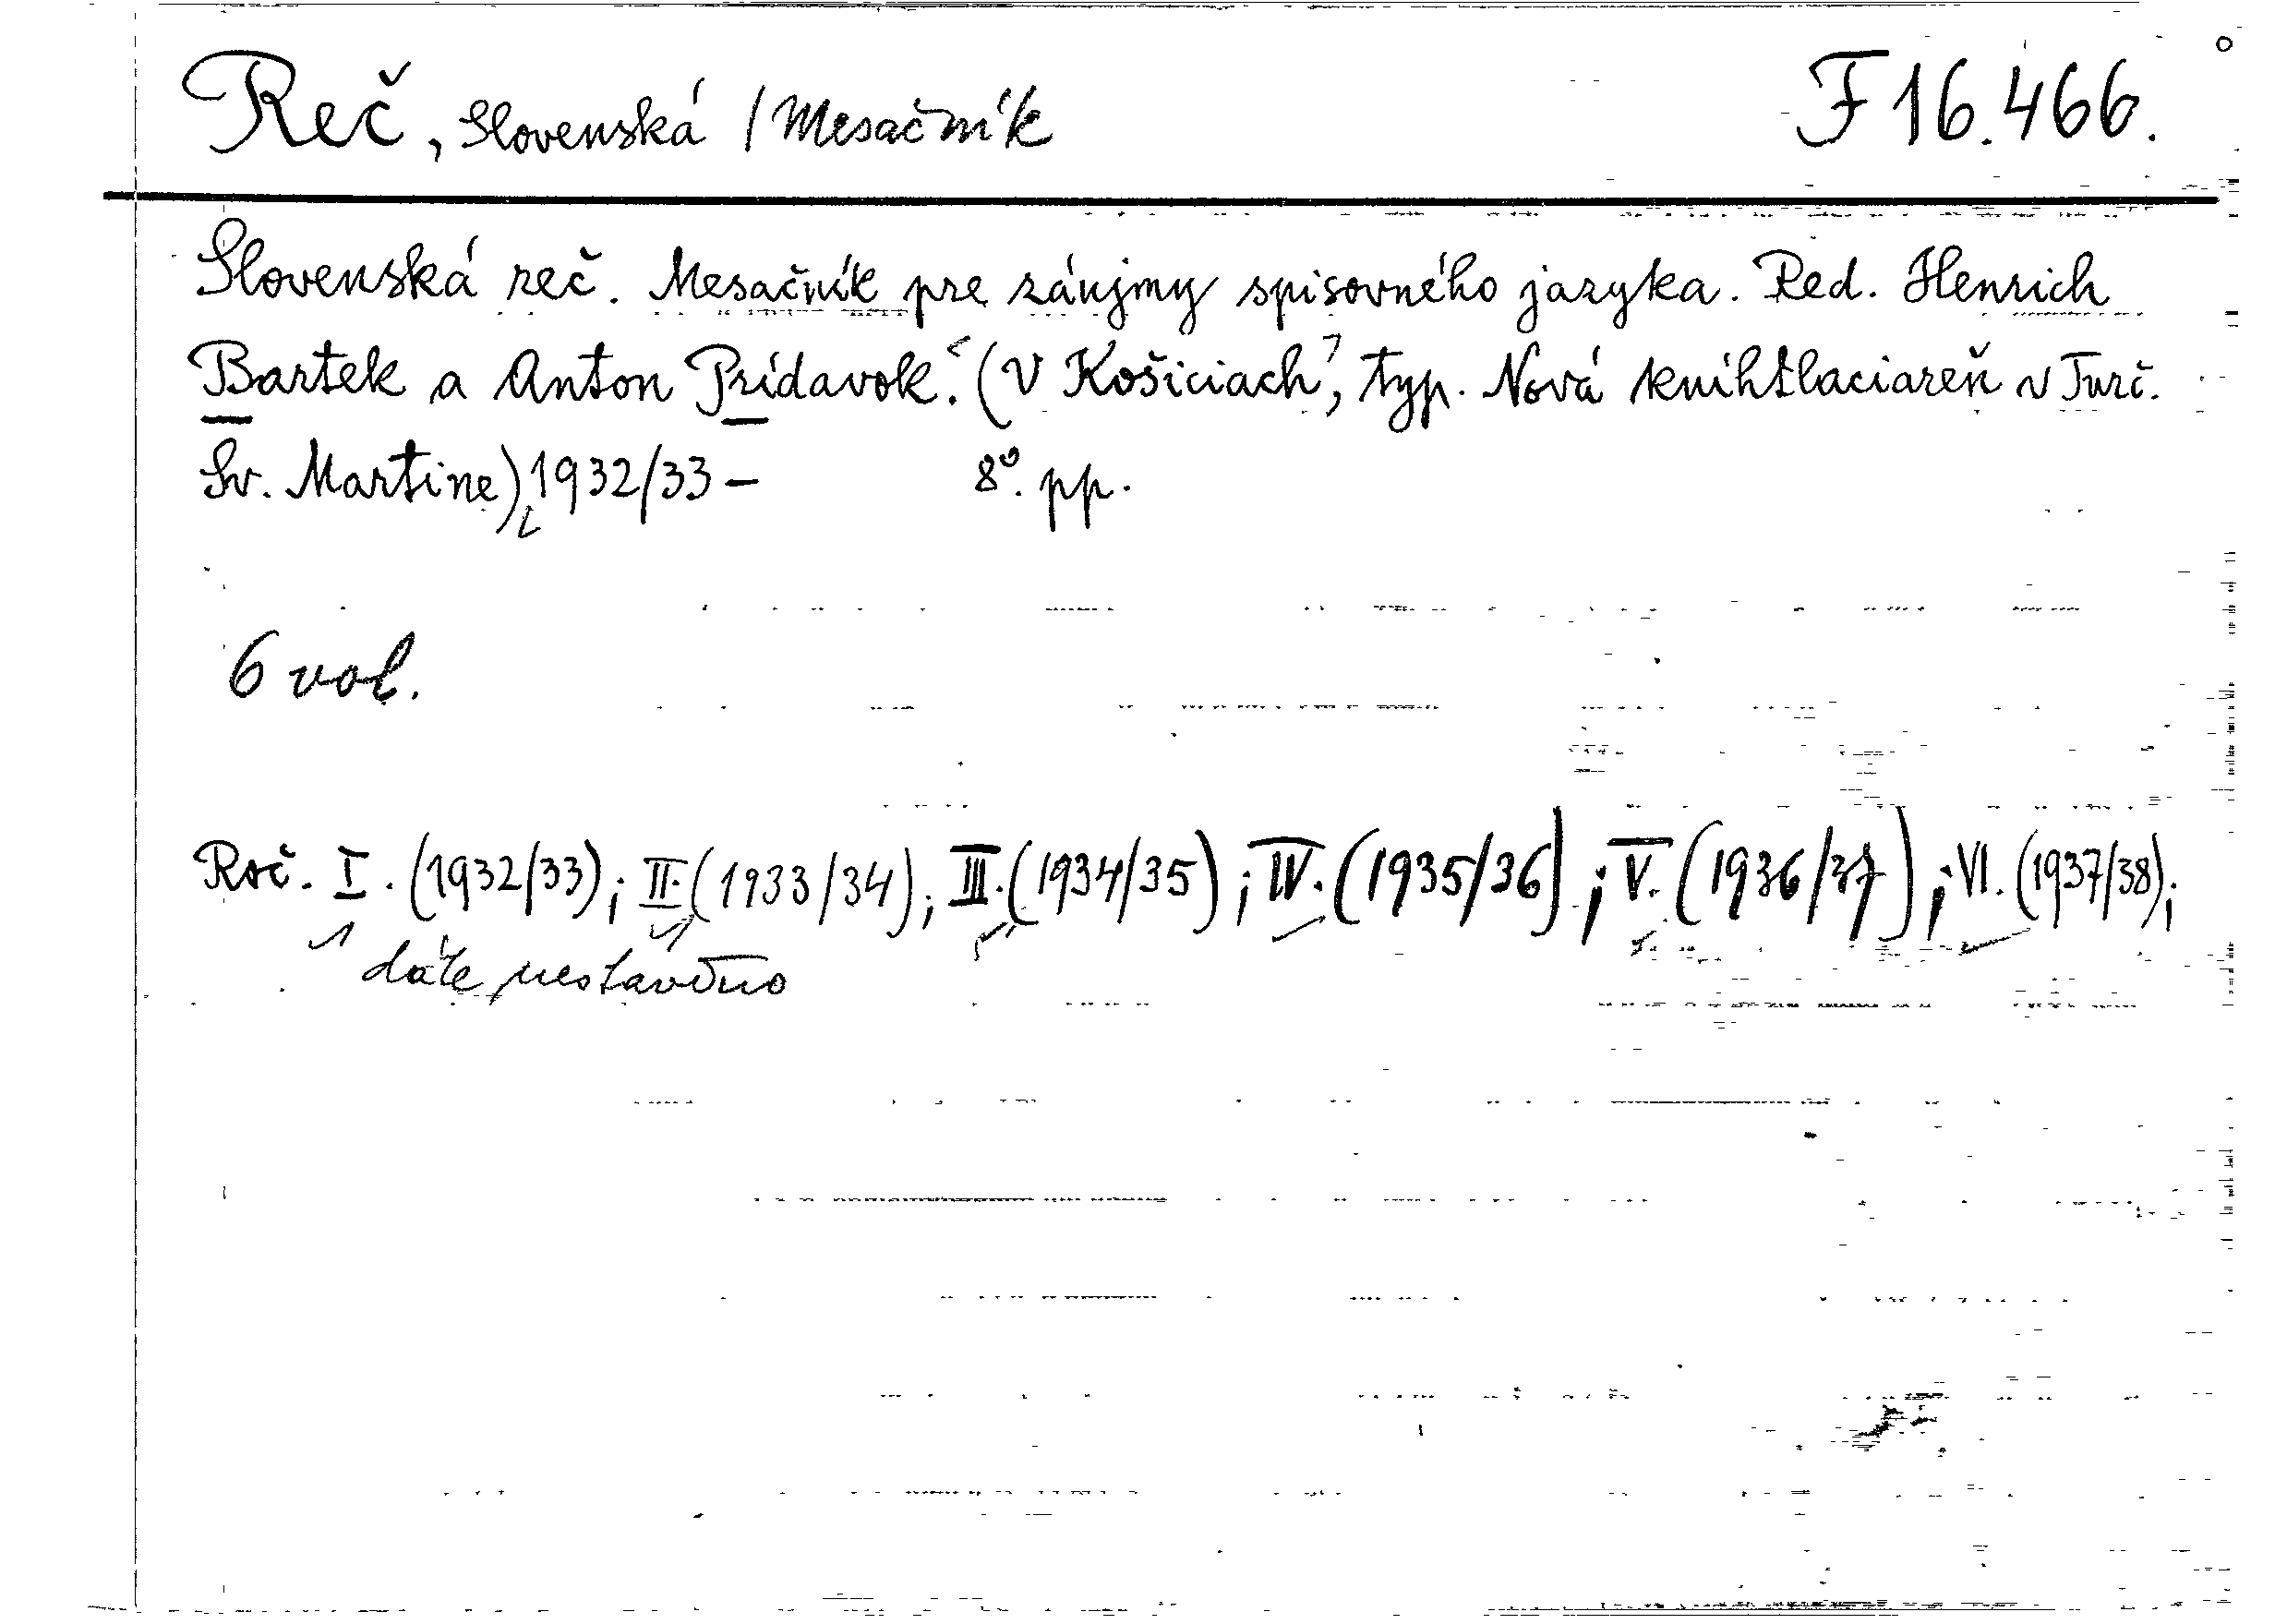 Reč, Slovenská / Mesačník F 16.466.
Slovenská reč. Mesačník pre záujmy spisovného jazyka. Red. Henrich
Bartek a Anton Prídavok. (V Košiciach, typ. Nová kníhtlaciareň v Turč.
Sv. Martine) 1932/33 – 8°. pp.
6 vol.
Roč. I. (1932/33); II. (1933/34); III. (1934/35); IV. (1935/36); V. (1936/37); VI. (1937/38);
dále nestavěno